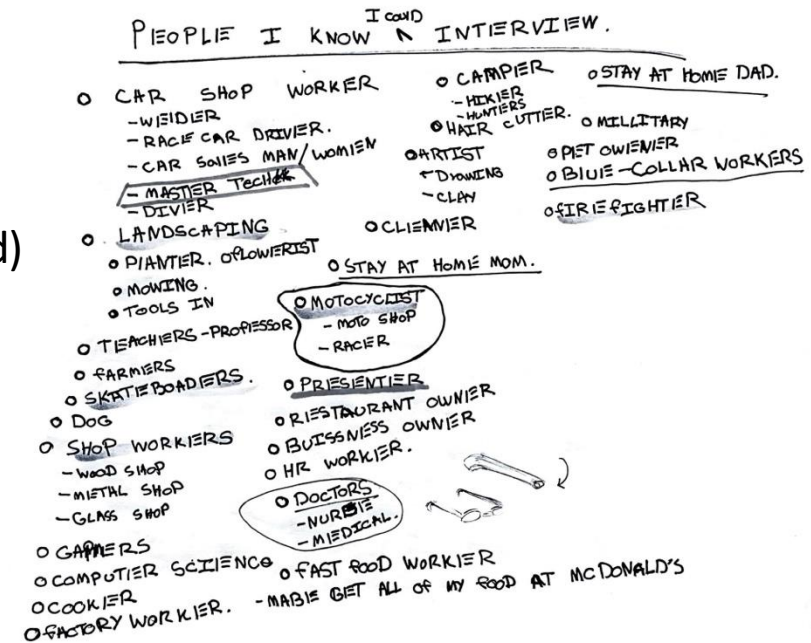 PEOPLE I KNOW ^ INTERVIEW.
I COULD
O CAR SHOP WORKER
- WELDER
- RACE CAR DRIVER.
- CAR SALES MAN/WOMEN
- MASTER TECH
- DIVER
O LANDSCAPING
O PLANTER. O FLOWERIST
O MOWING.
O TOOLS IN
O TEACHERS - PROFESSOR
O FARMERS
O SKATEBOADERS.
O DOG
O SHOP WORKERS
- WOOD SHOP
- METAL SHOP
- GLASS SHOP
O GAMERS
O COMPUTER SCIENCE
O COOKER
O FACTORY WORKER.
O CAMPER
- HIKER
- HUNTERS
O HAIR CUTTER.
O ARTIST
- DRAWING
- CLAY
O CLEANER
O STAY AT HOME MOM.
O MOTOCYCLIST
- MOTO SHOP
- RACER
O PRESENTER
O RESTAURANT OWNER
O BUISSNESS OWNER
O HR WORKER.
O DOCTORS
- NURSE
- MEDICAL.
O FAST FOOD WORKER
- MABE GET ALL OF MY FOOD AT MCDONALD'S
O STAY AT HOME DAD.
O MILLITARY
O PET OWENER
O BLUE-COLLAR WORKERS
O FIREFIGHTER
d)